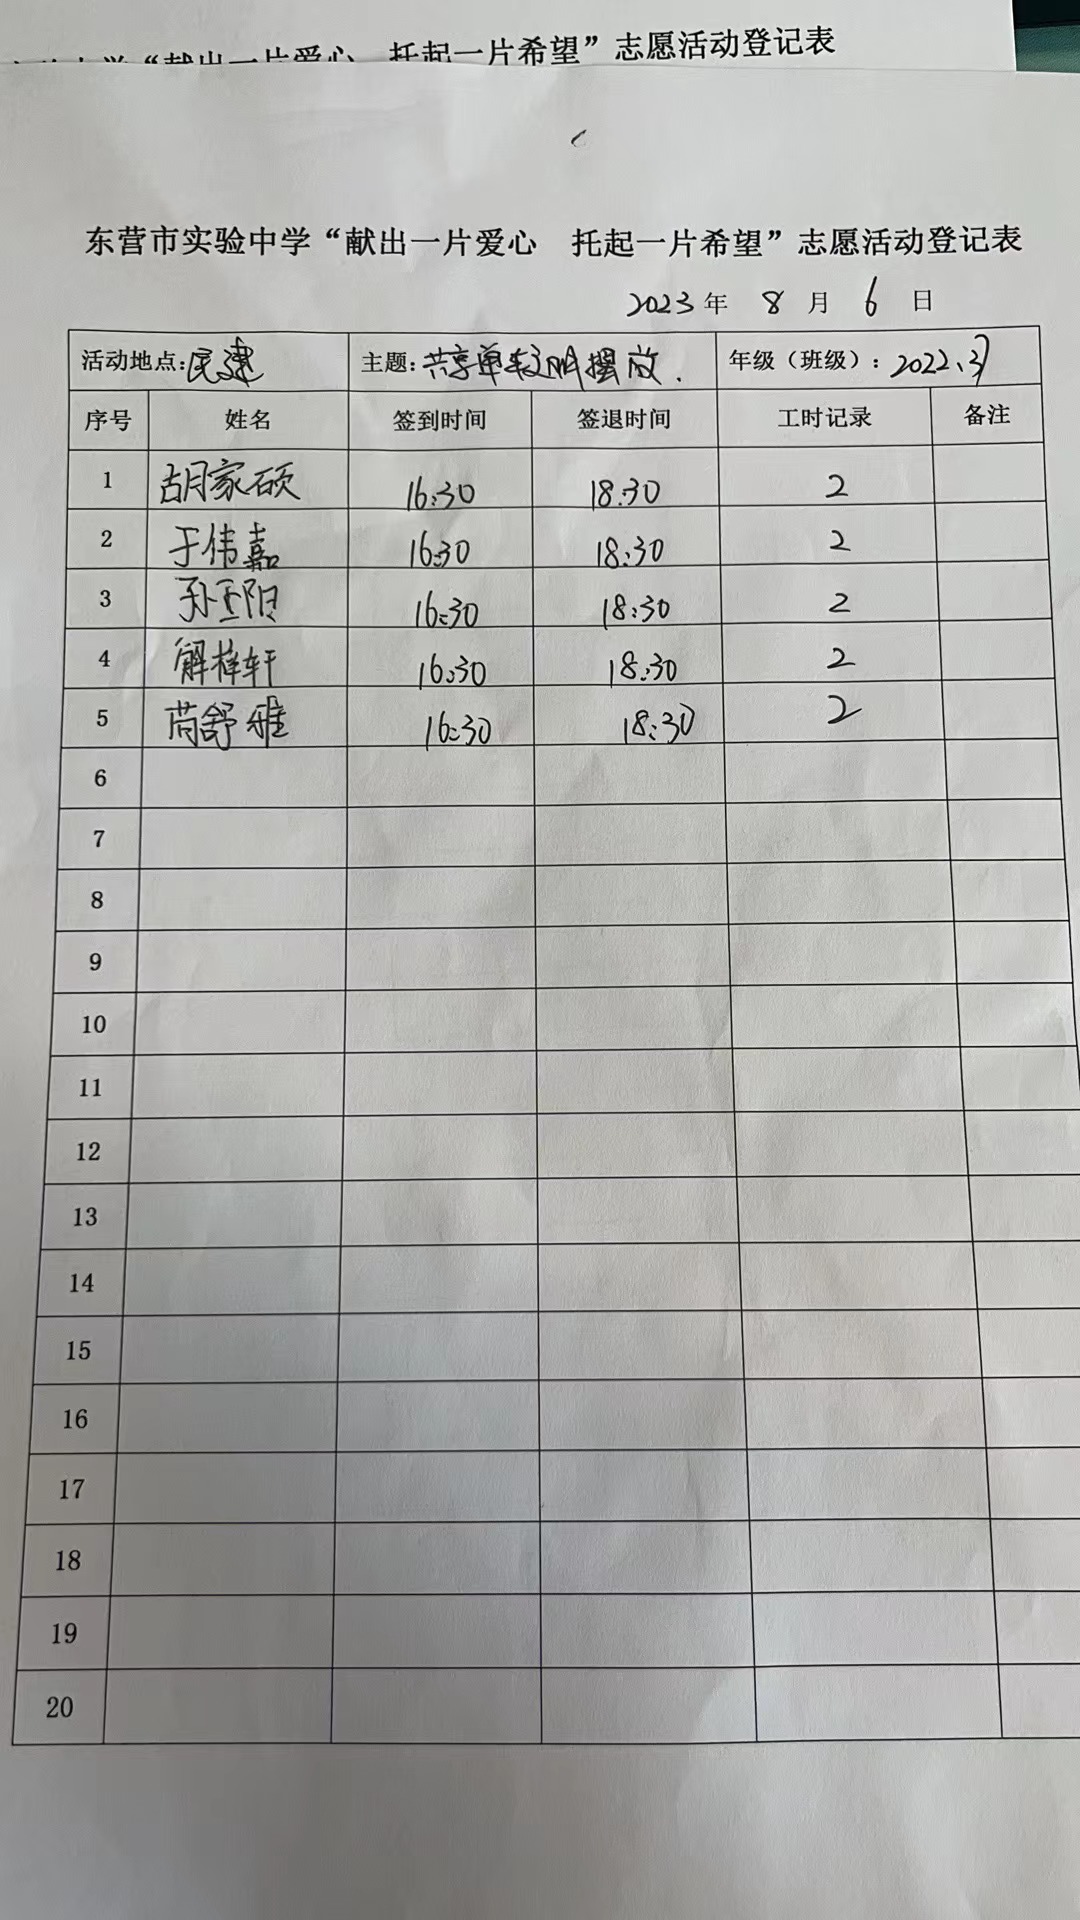 “献出一片爱心 托起一片希望”志愿活动登记表
东营市实验中学“献出一片爱心 托起一片希望”志愿活动登记表
2023 年 8 月 6 日
活动地点:民建 主题:共享单车文明摆放. 年级（班级）: 2022.37
序号 姓名 签到时间 签退时间 工时记录 备注
1 胡家硕 16:30 18:30 2
2 于伟嘉 16:30 18:30 2
3 孙玉阳 16:30 18:30 2
4 解梓轩 16:30 18:30 2
5 苘舒雅 16:30 18:30 2
6
7
8
9
10
11
12
13
14
15
16
17
18
19
20